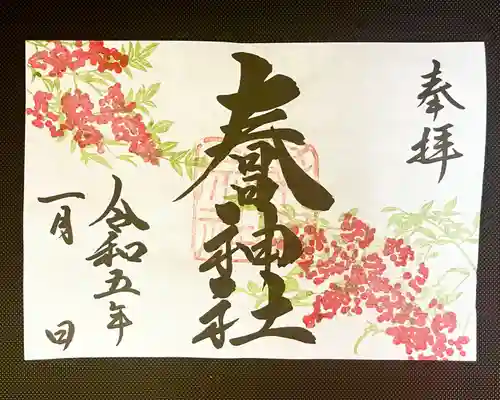 奉拝
春日神社
令和五年
一月 日